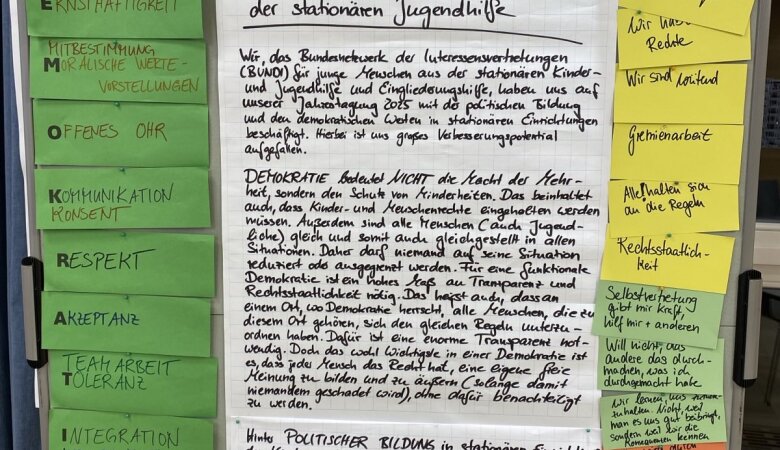 ERNSHAFTIGKEIT
MITBESTIMMUNG
MORALISCHE WERTE-
VORSTELLUNGEN
OFFENES OHR
KOMMUNIKATION
KONSENT
RESPEKT
AKZEPTANZ
TEAMARBEIT
TOLERANZ
INTEGRATION
der stationären Jugendhilfe
Wir, das Bundesnetzwerk der Interessensvertretungen
(BUNDI) für junge Menschen aus der stationären Kinder-
und Jugendhilfe und Eingliederungshilfe, haben uns auf
unserer Jahrestagung 2025 mit der politischen Bildung
und den demokratischen Werten in stationären Einrichtungen
beschäftigt. Hierbei ist uns großes Verbesserungspotential
aufgefallen.
DEMOKRATIE bedeutet NICHT die Macht der Mehr-
heit, sondern den Schutz von Minderheiten. Das beinhaltet
auch, dass Kinder- und Menschenrechte eingehalten werden
müssen. Außerdem sind alle Menschen (auch Jugend-
liche) gleich und somit auch gleichgestellt in allen
Situationen. Daher darf niemand auf seine Situation
reduziert oder ausgegrenzt werden. Für eine funktionale
Demokratie ist ein hohes Maß an Transparenz und
Rechtsstaatlichkeit nötig. Das heisst auch, dass an
einem Ort, wo Demokratie herrscht, alle Menschen, die zu
diesem Ort gehören, sich den gleichen Regeln unterzu-
ordnen haben. Dafür ist eine enorme Transparenz not-
wendig. Doch das wohl Wichtigste in einer Demokratie ist
es, dass jedes Mensch das Recht hat, eine eigene freie
Meinung zu bilden und zu äußern (solange damit
niemandem geschadet wird), ohne dafür benachteiligt
zu werden.
Hinter POLITISCHER BILDUNG in stationären
Wir haben
Rechte
Wir sind
Gremienarbeit
Alle! halten sich
an die Regeln
Rechtsstaatlich-
keit
Selbstvertretung
gibt mir Kraft,
hilf mir + anderen
Will nicht, das
andere das durch-
machen, was ich
durchgemacht habe
wir lernen, uns
zuhalten. Nicht, weil
man es uns gut beibringt,
sondern weil wir die
Konsequenzen kennen